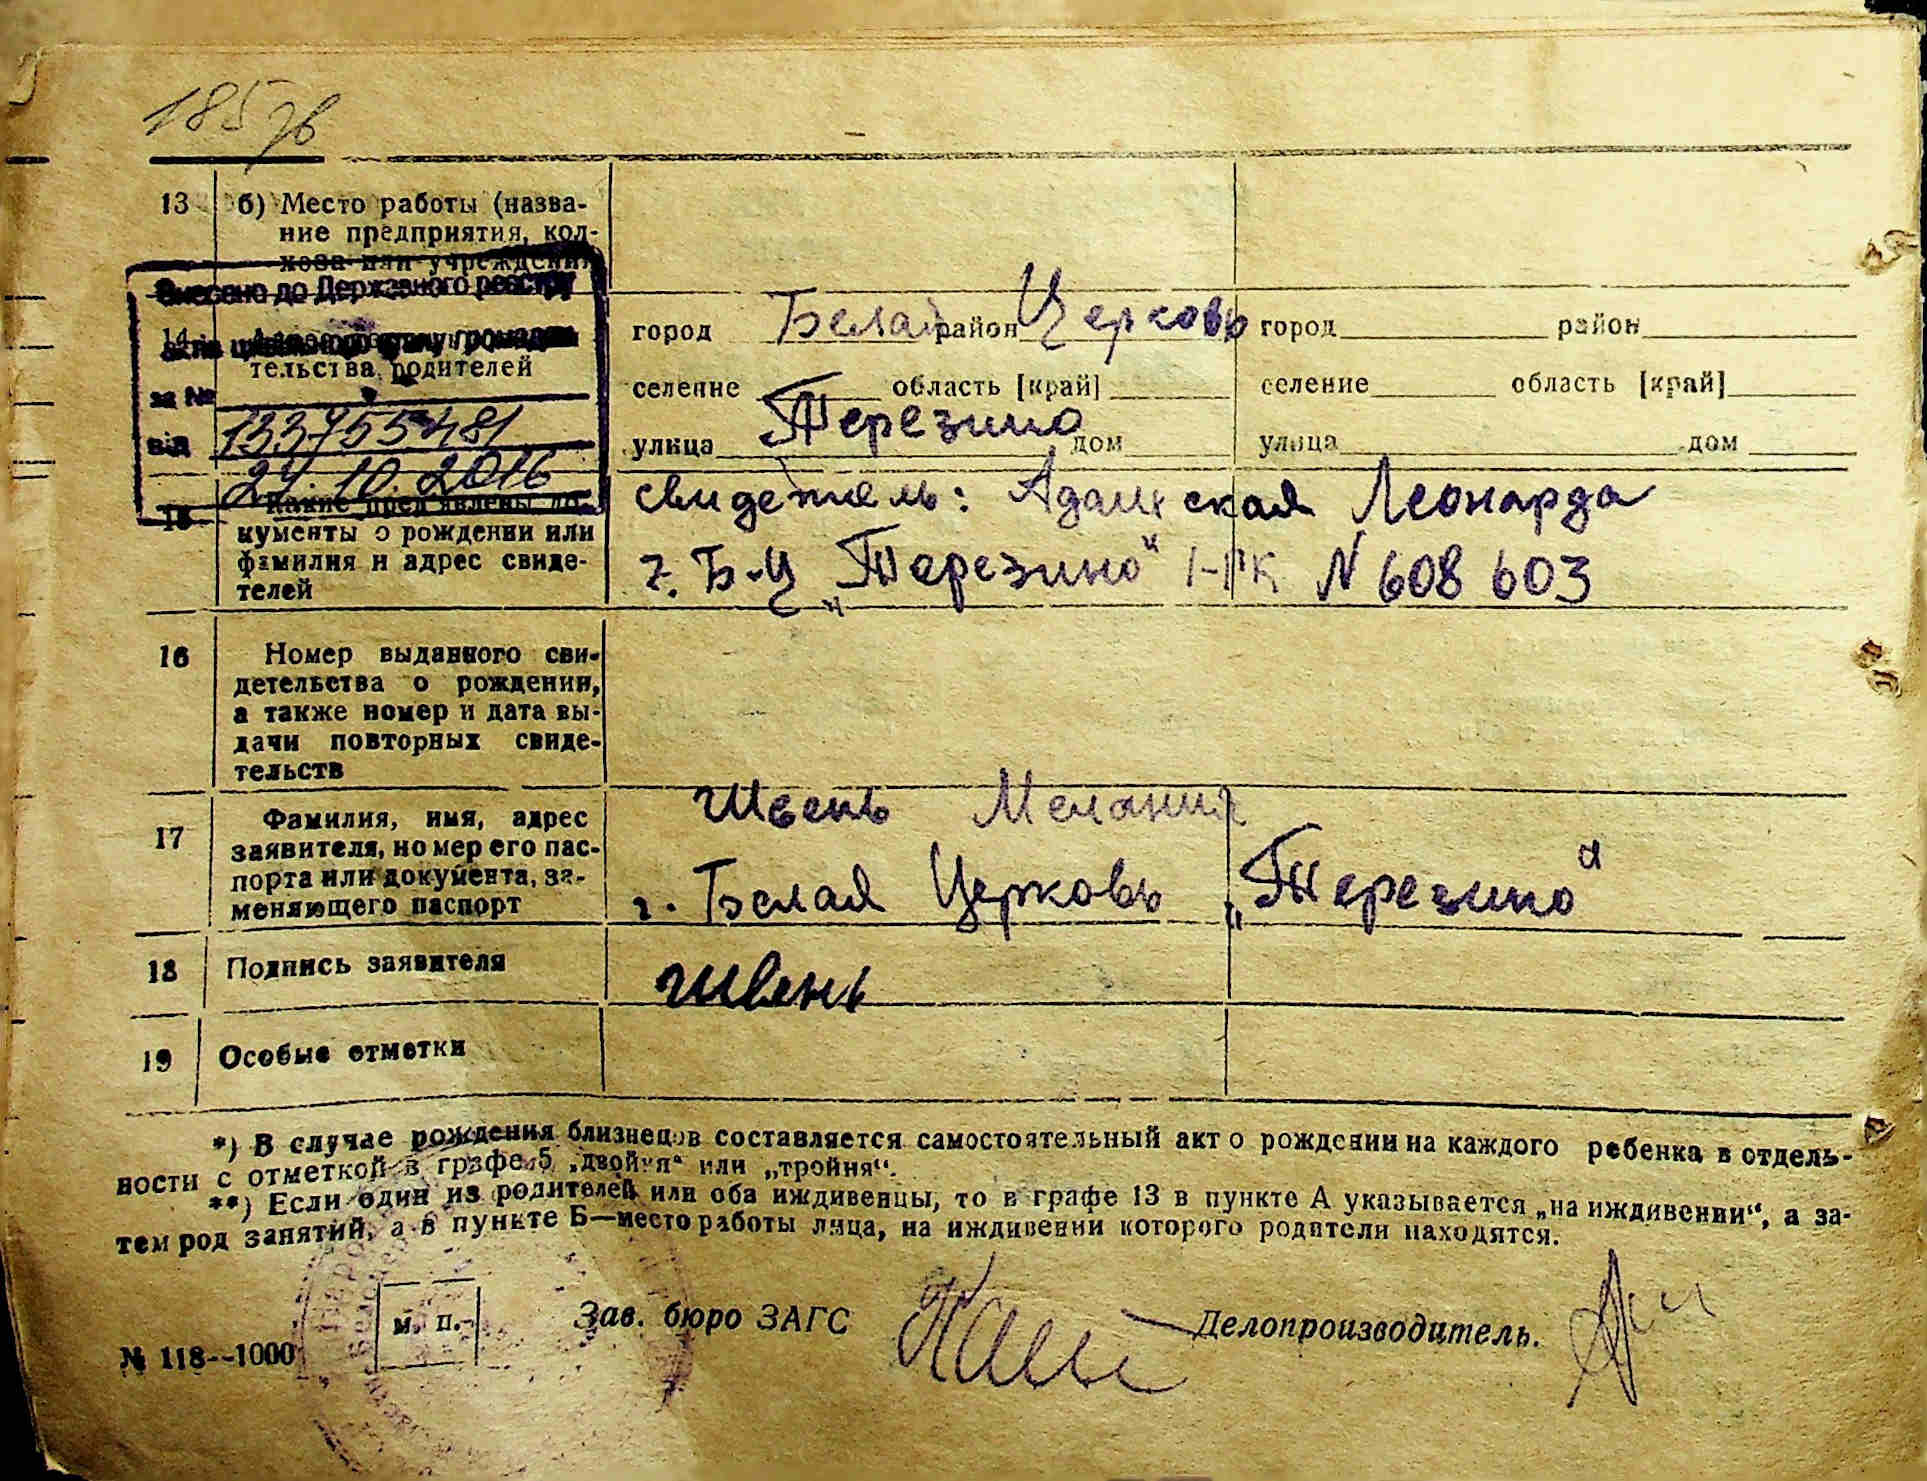 185 зв
13 б) Место работы (назва-
ние предприятия, кол-
хоза или учреждения
Внесено до Державного реєстру
14 Адрес
тельства родителей
за № 133755481
від 24.10.2016
город Белая район Церковь город район
селение область [край] селение область [край]
улица Терезино дом улица дом
15 Какие пред'явлены до-
кументы о рождении или
фамилия и адрес свиде-
телей
свидетель: Адамская Леонарда
г. Б-Ц „Терезино“ N 608 603
16 Номер выданного сви-
детельства о рождении,
а также номер и дата вы-
дачи повторных свиде-
тельств
17 Фамилия, имя, адрес
заявителя, номер его пас-
порта или документа, за-
меняющего паспорт
Швень Мелания
г. Белая Церковь „Терезино“
18 Подпись заявителя Швень
19 Особые отметки
*) В случае рождения близнецов составляется самостоятельный акт о рождении на каждого ребенка в отдель-
ности с отметкой в графе 5 „двойня“ или „тройня“.
**) Если один из родителей или оба иждивенцы, то в графе 13 в пункте А указывается „на иждивении“, а за-
тем род занятий, а в пункте Б—место работы лица, на иждивении которого родители находятся.
м. п.
Зав. бюро ЗАГС Делопроизводитель.
№ 118--1000